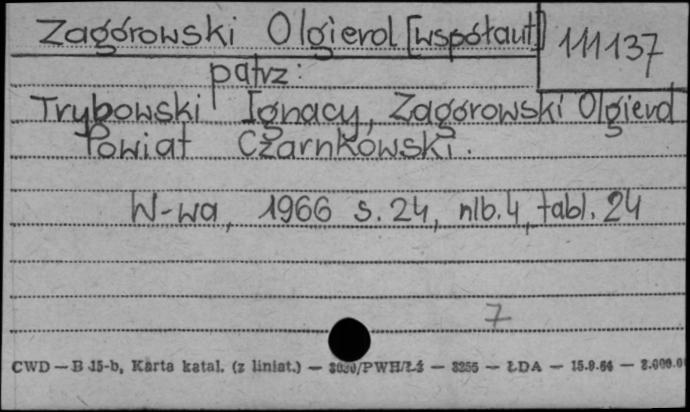 Zagórowski Olgierd [współaut]
111137
patrz:
Trybowski Ignacy, Zagórowski Olgierd
Powiat Czarnkowski.
W-wa, 1966 s. 24, nlb. 4, tabl. 24
7
CWD — B 15-b, Karta katal. (z liniat.) — /PWH/Łź — 3255 — ŁDA — 15.9.64 — 2.000.0